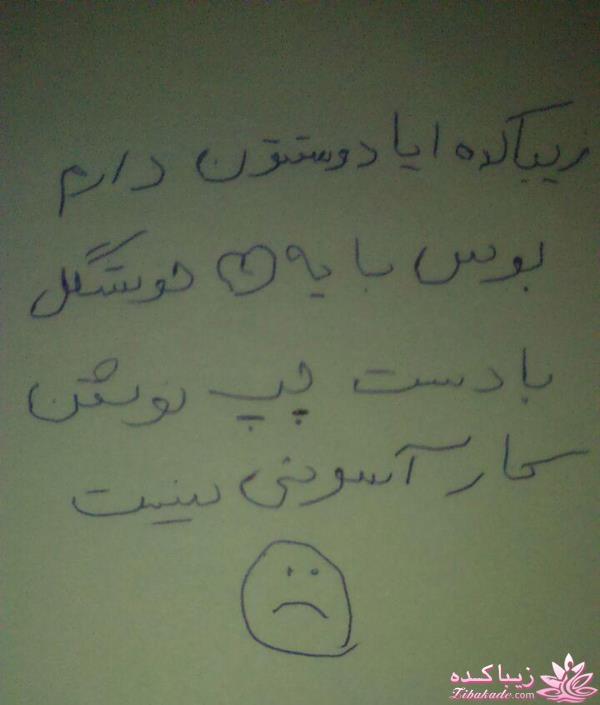 زیباکده ایا دوستتون دارم
بوس با یه ♡ خوشگل
با دست چپ نوشتن
کار آسونی نیست
زیباکده
Zibakade.com